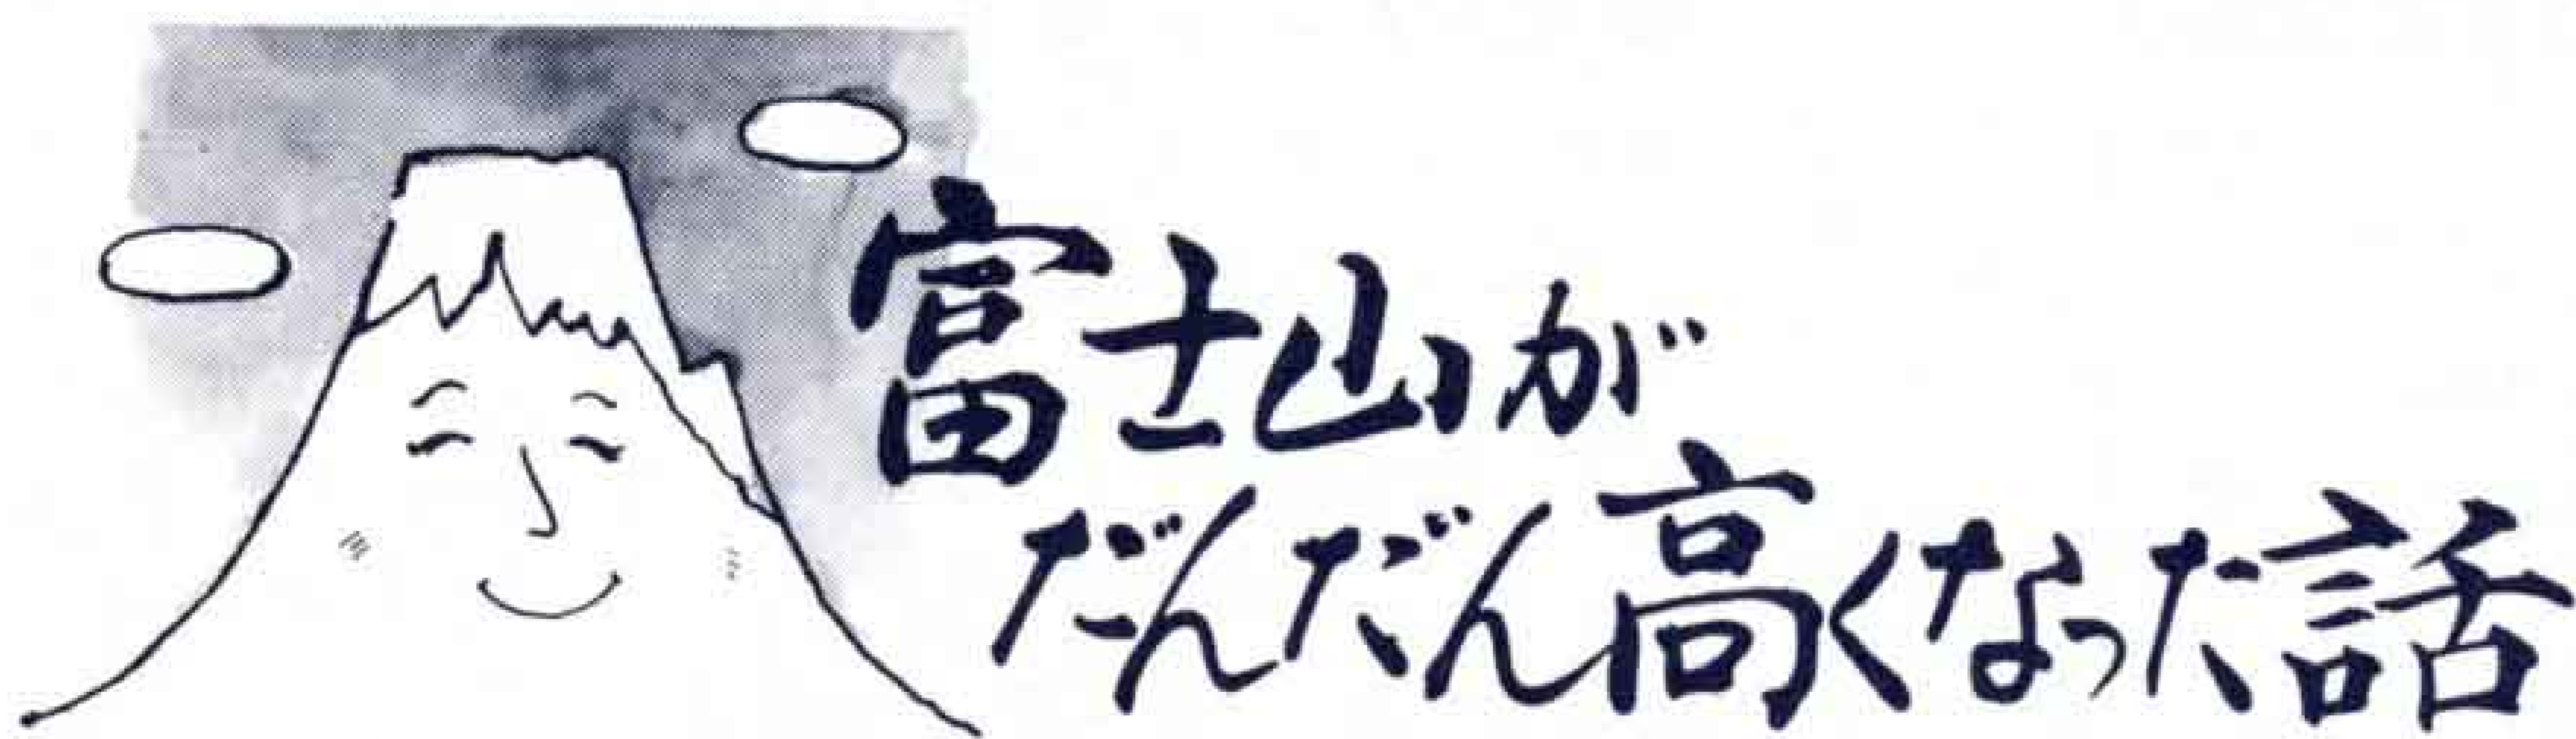 富士山が
だんだん高くなった話